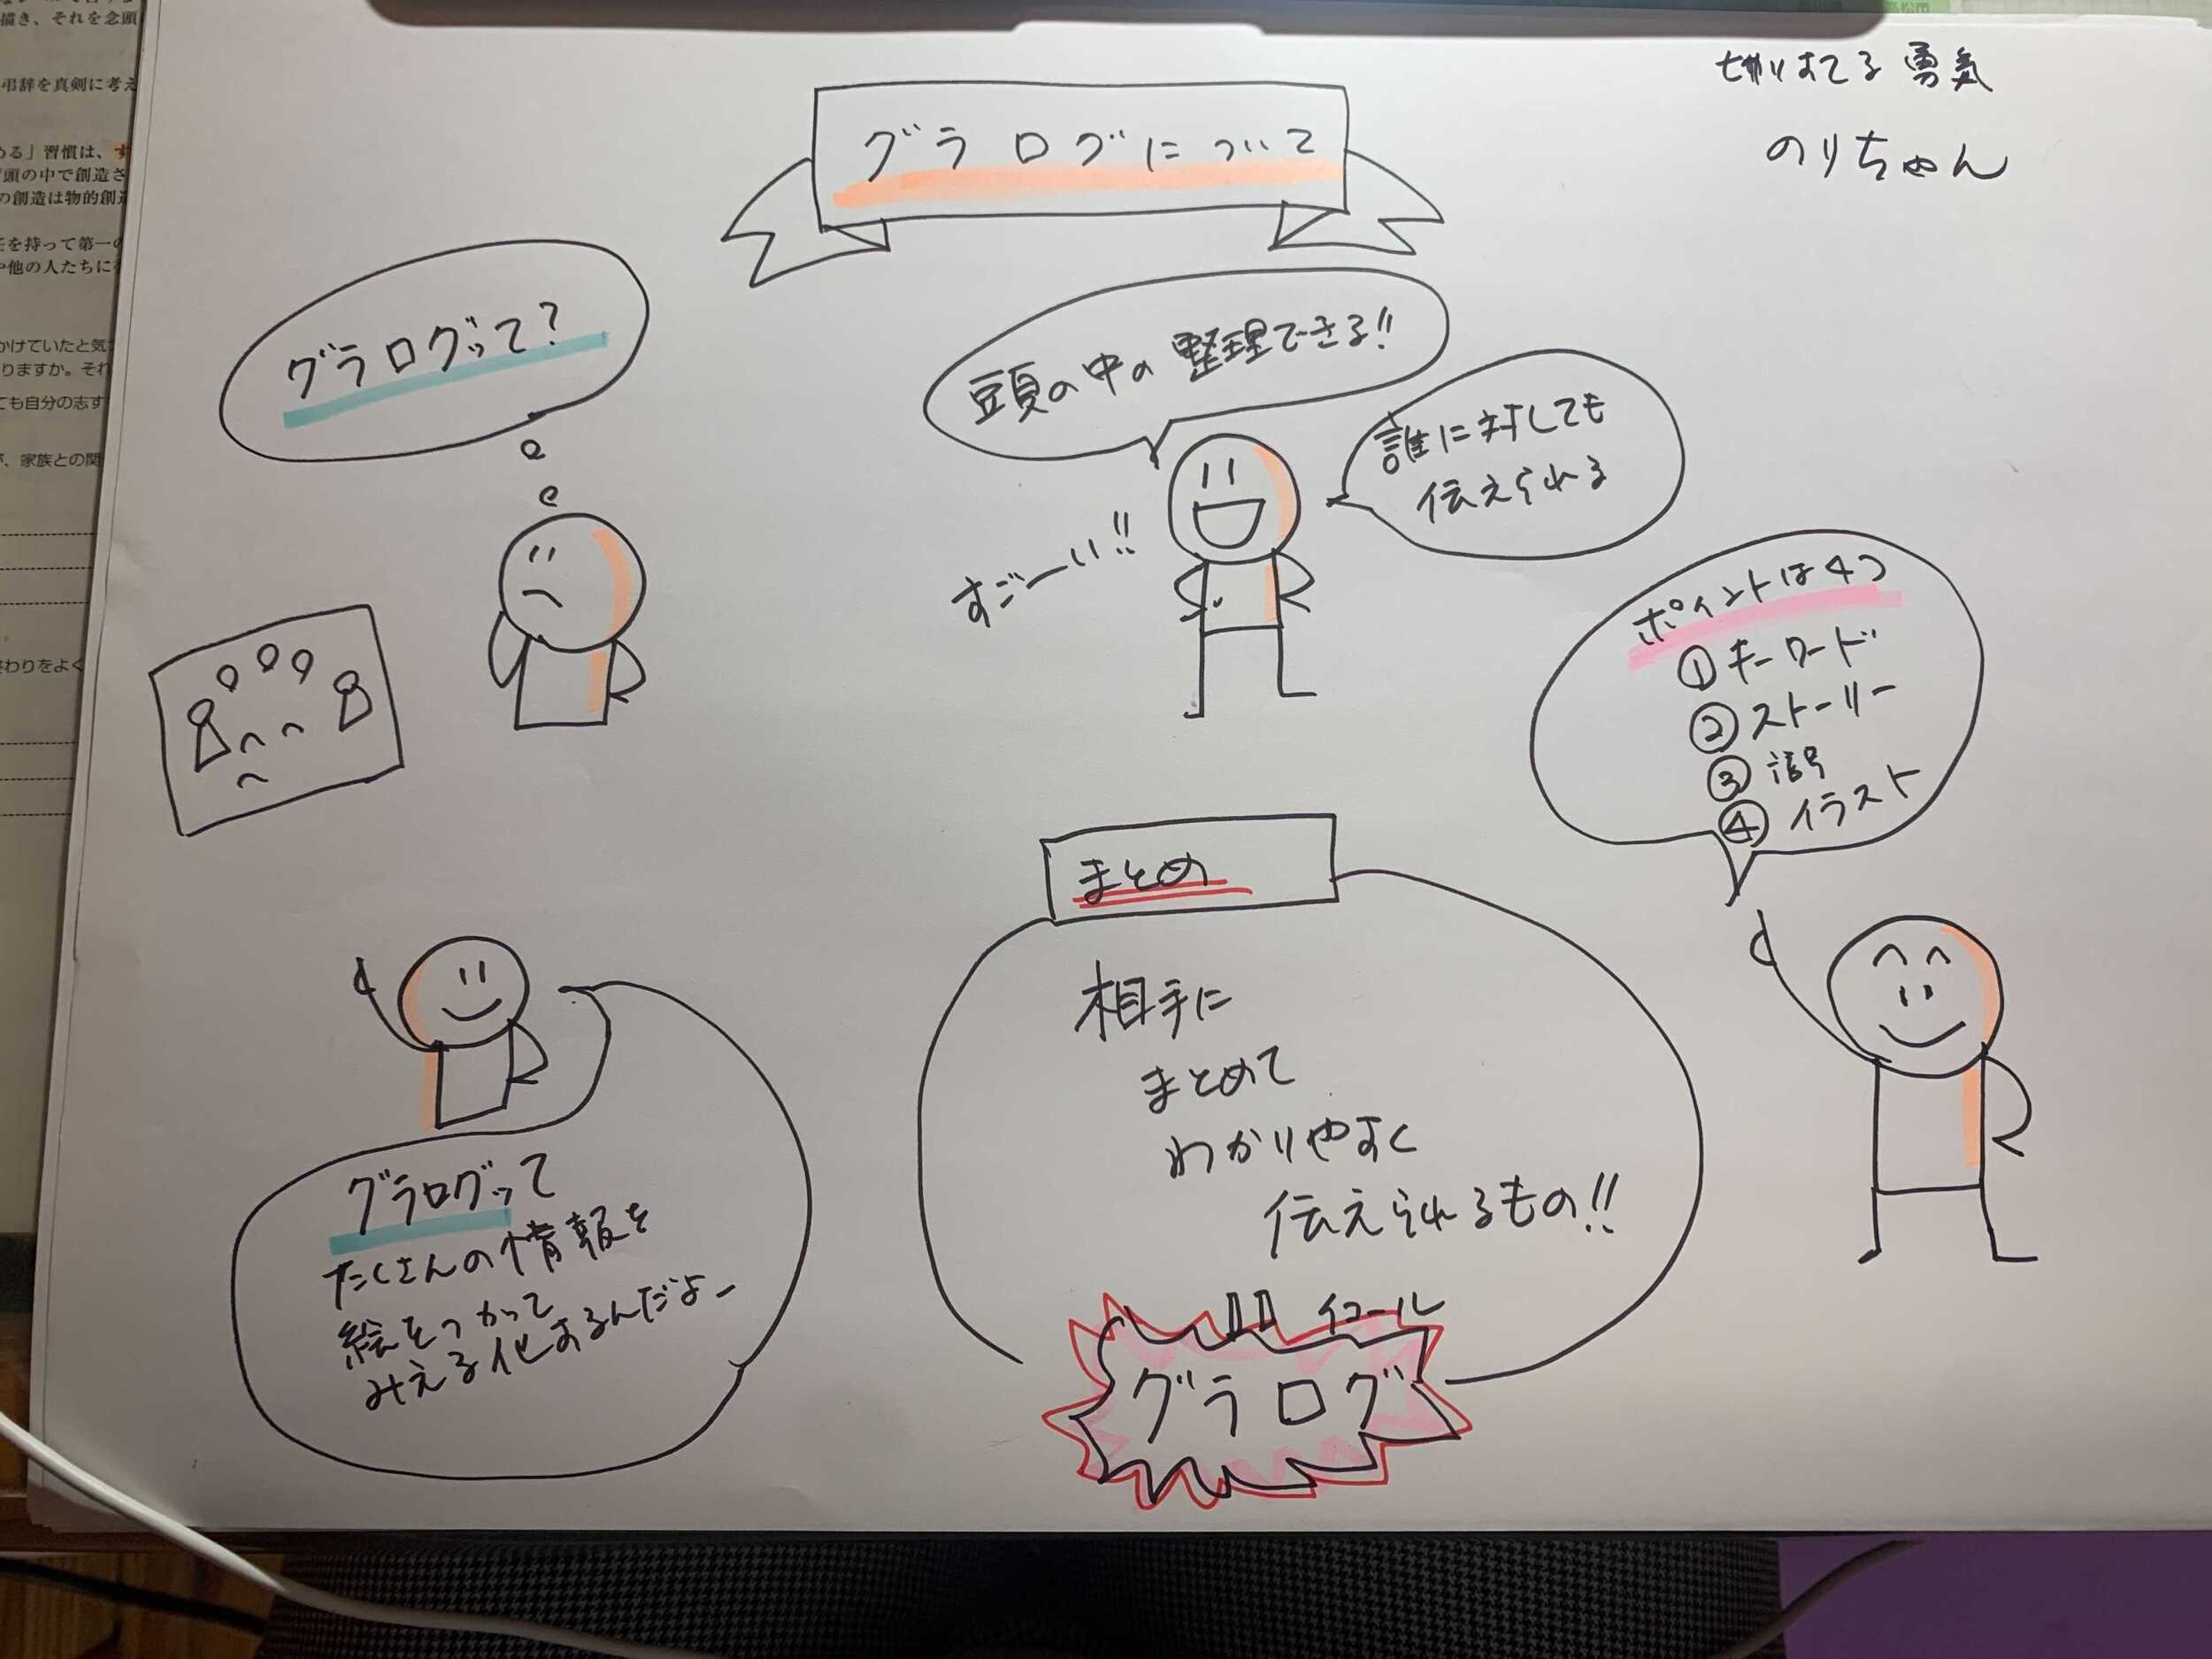 切りすてる勇気
のりちゃん
グラログについて
グラログって?
頭の中の整理できる!!
誰に対しても
伝えられる
すごーい!!
ポイントは4つ
①キーワード
②ストーリー
③
④イラスト
グラログって
たくさんの情報を
絵をつかって
みえる化するんだよー
まとめ
相手に
まとめて
わかりやすく
伝えられるもの!!
イコール
グラログ
描き、それを念頭
弔辞を真剣に考え
める」習慣は、す
頭の中で創造さ
の創造は物的創造
任を持って第一の
や他の人たちに
かけていたと気
りますか。それ
ても自分の志す
が、家族との関
終わりをよく